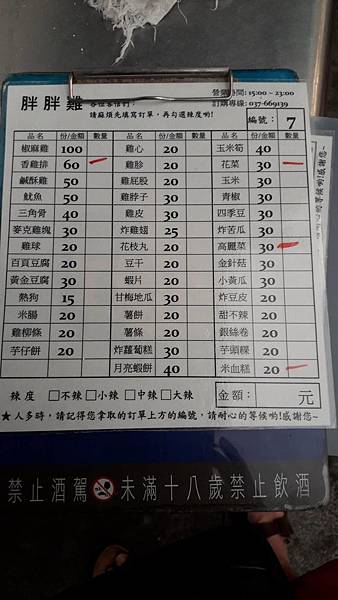 胖胖雞 各位客倌們： 營業時間: 15:00 ~ 23:00
請麻煩先填寫訂單，再勾選辣度喲! 訂購專線: 037-669139
編號： 7
品名 份/金額 數量 品名 份/金額 數量 品名 份/金額 數量
椒麻雞 100 雞心 20 玉米筍 40
香雞排 60 雞胗 20 花菜 30
鹹酥雞 50 雞屁股 20 玉米 30
魷魚 50 雞脖子 30 青椒 30
三角骨 40 雞皮 30 四季豆 30
麥克雞塊 30 炸雞翅 25 炸苦瓜 30
雞球 20 花枝丸 20 高麗菜 30
百頁豆腐 20 豆干 20 金針菇 30
黃金豆腐 30 蝦片 20 小黃瓜 30
熱狗 15 甘梅地瓜 30 炸豆皮 20
米腸 20 薯餅 20 甜不辣 20
雞柳條 20 薯條 20 銀絲卷 20
芋仔餅 20 炸蘿蔔糕 30 芋頭粿 20
月亮蝦餅 40 米血糕 20
辣度 □不辣 □小辣 □中辣 □大辣 金額： 元
★人多時，請記得您拿取的訂單上方的編號，請耐心的等候喲!感謝您~
禁止酒駕 未滿十八歲禁止飲酒